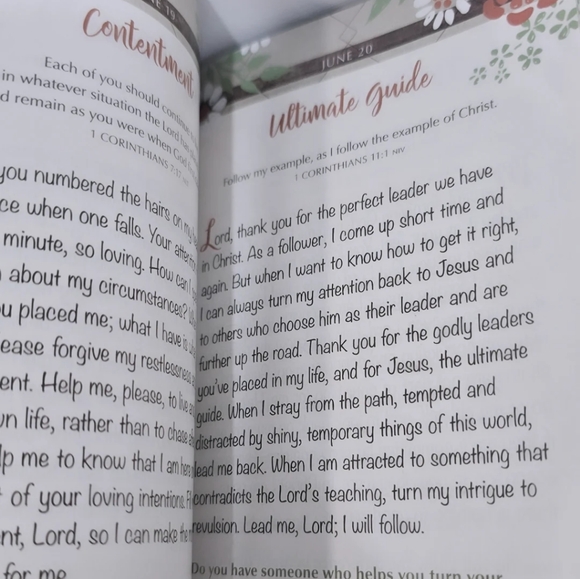 NE 19
Contentment
Each of you should
in whatever situation the Lord
d remain as you were when God
1 CORINTHIANS 7:17
you numbered the hairs on my
ce when one falls. Your
minute, so loving. How can I
about my circumstances?
u placed me; what I have is
ease forgive my restlessness
ent. Help me, please, to live
wn life, rather than to chase
lp me to know that I am
of your loving intentions.
nt, Lord, so I can make the
for me
JUNE 20
Ultimate Guide
Follow my example, as I follow the example of Christ.
1 CORINTHIANS 11:1 NIV
Lord, thank you for the perfect leader we have
in Christ. As a follower, I come up short time and
again. But when I want to know how to get it right,
I can always turn my attention back to Jesus and
to others who choose him as their leader and are
further up the road. Thank you for the godly leaders
you've placed in my life, and for Jesus, the ultimate
guide. When I stray from the path, tempted and
distracted by shiny, temporary things of this world,
lead me back. When I am attracted to something that
contradicts the Lord's teaching, turn my intrigue to
revulsion. Lead me, Lord; I will follow.
Do you have someone who helps you turn your